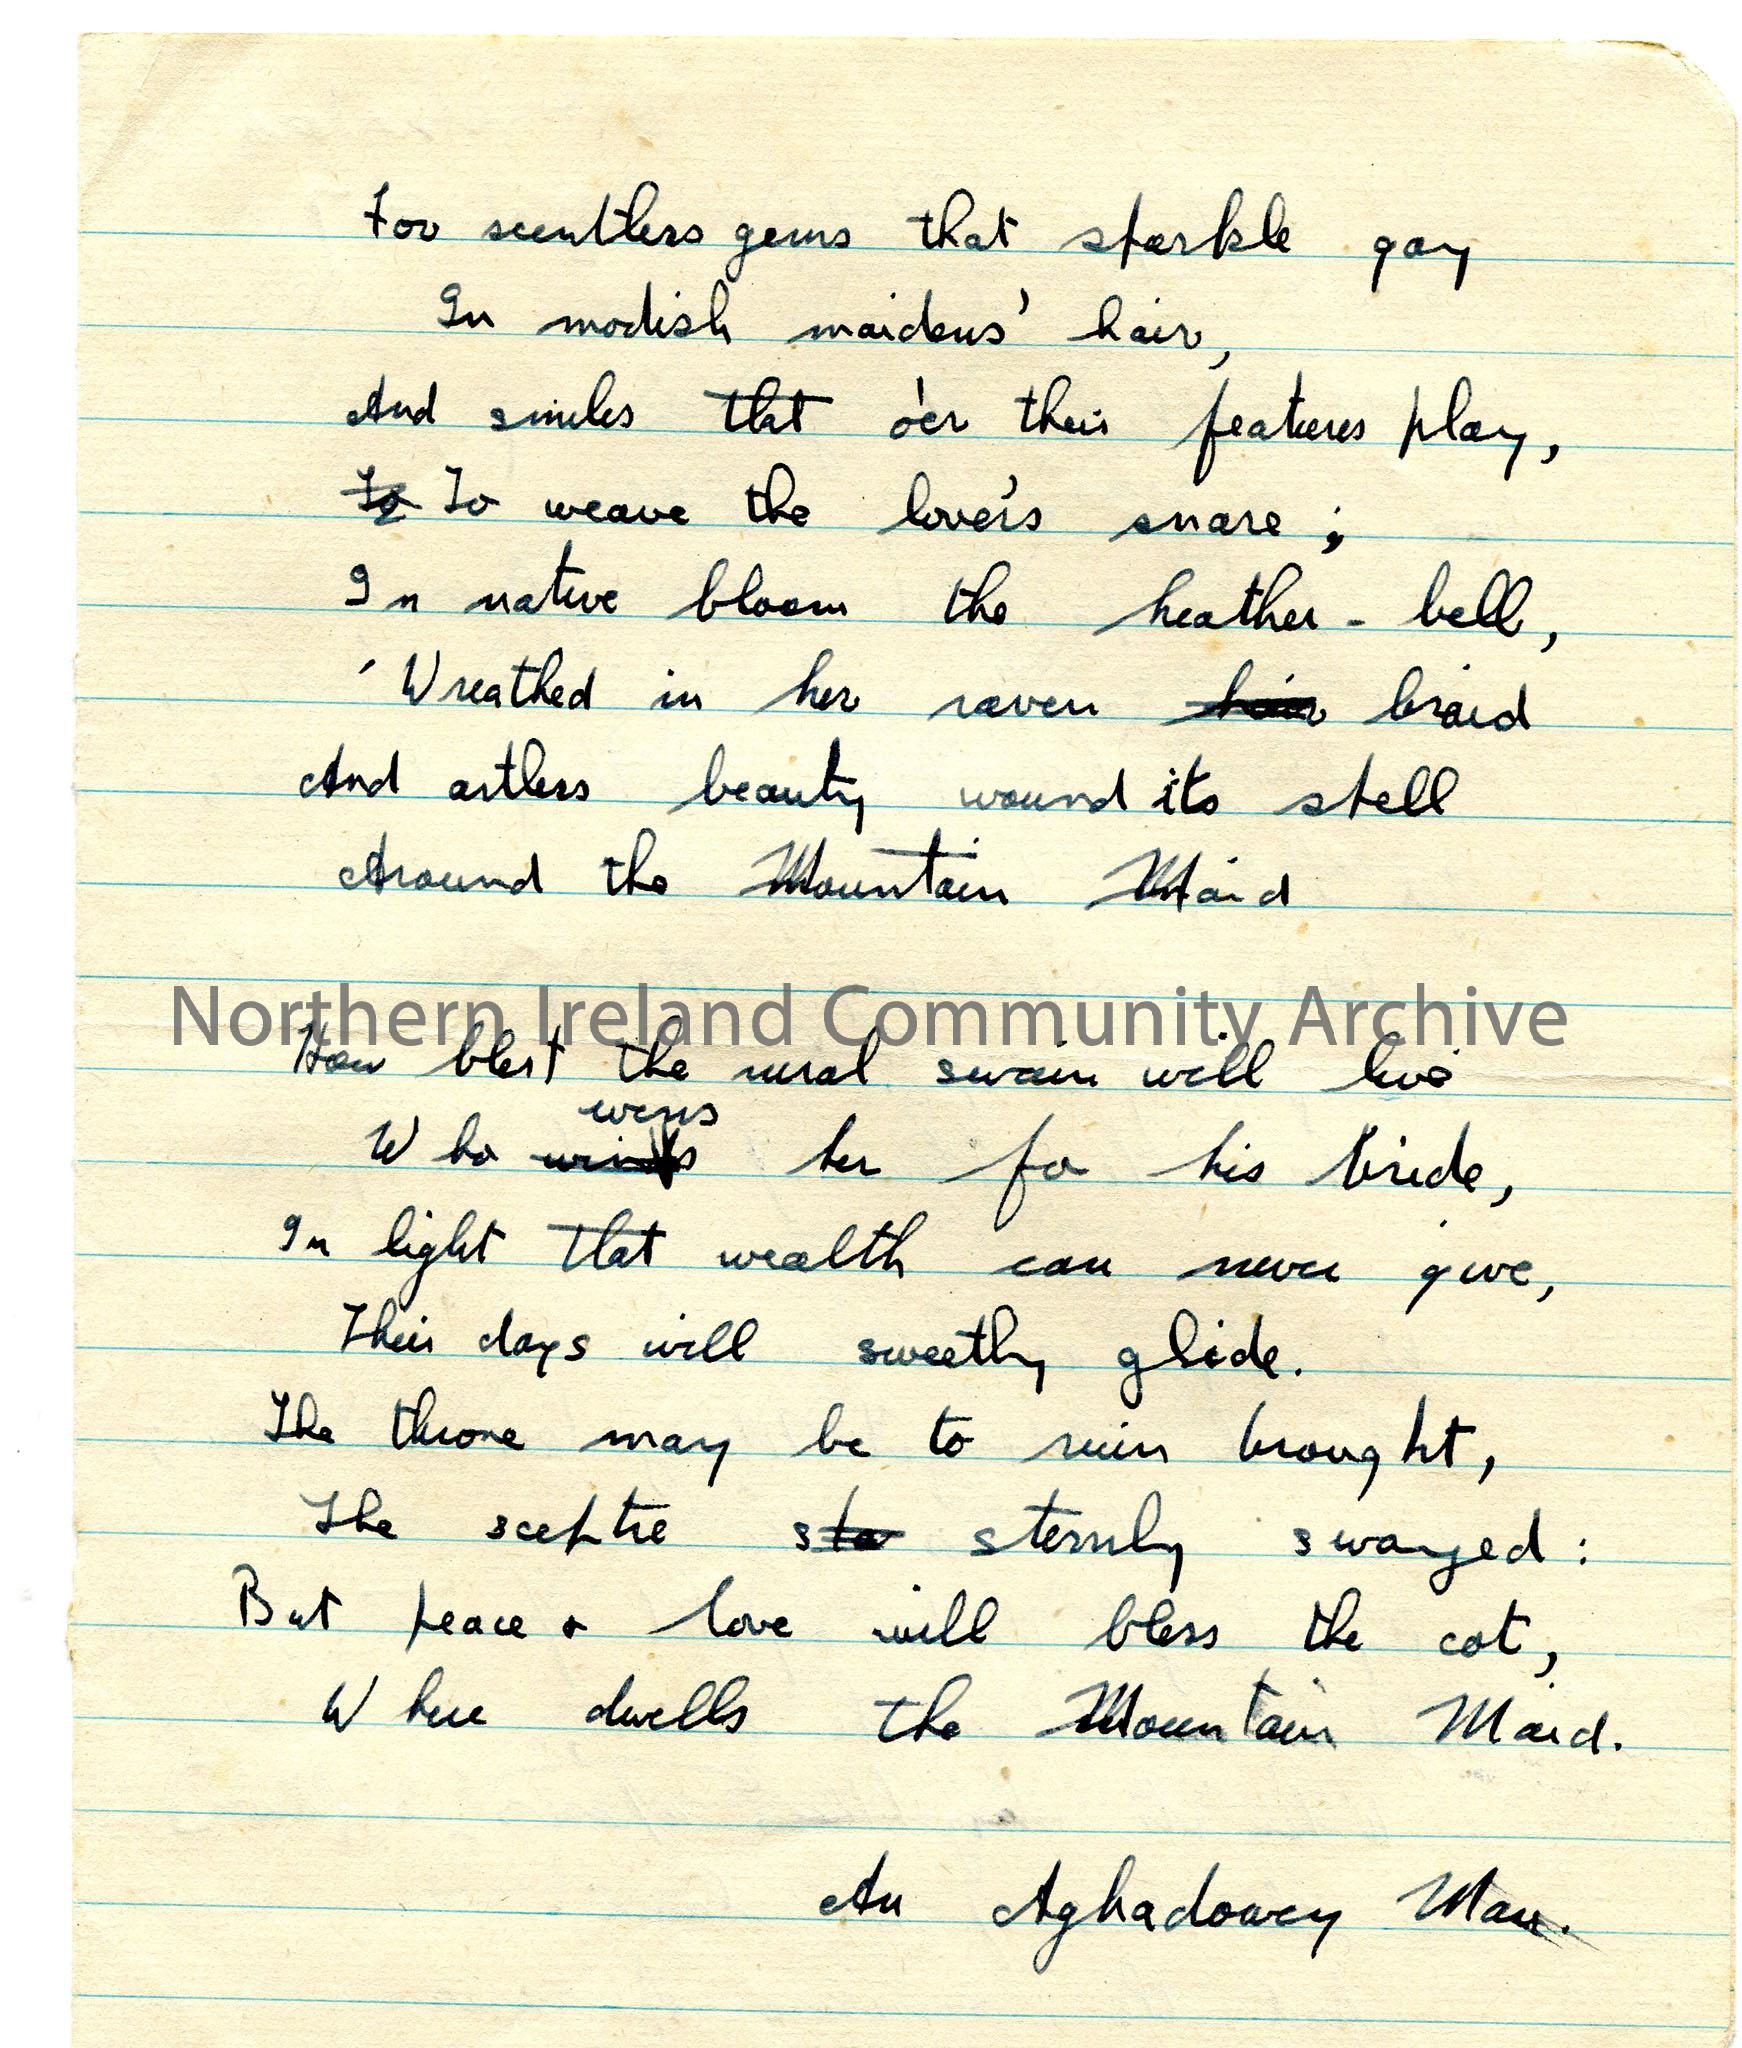 For scentless gems that sparkle gay
In modish maidens' hair,
And smiles that o'er their features play,
To To weave the lover's snare;
In native bloom the heather-bell,
'Wreathed in her raven hair braid
And artless beauty wound its spell
Around the Mountain Maid
Northern Ireland Community Archive
How blest the rural swain will live
wins
Who wins her for his bride,
In light that wealth can never give,
Their days will sweetly glide.
The throne may be to ruin brought,
The sceptre sta sternly swayed:
But peace & love will bless the cot,
Where dwells the Mountain Maid.
An Aghadowey Man.